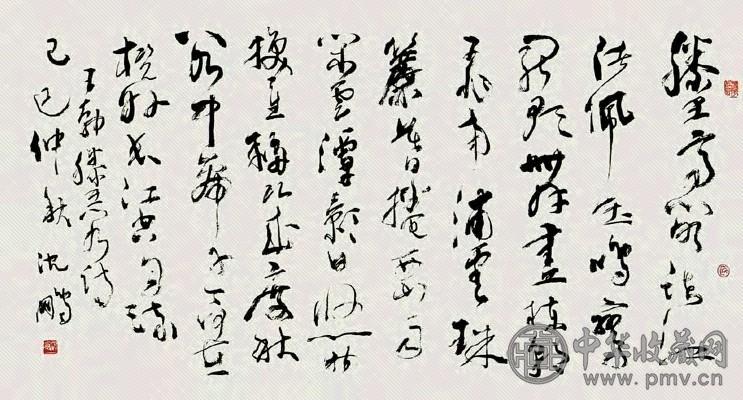 滕王高阁临江
渚佩玉鸣鸾
罢歌舞画栋朝
飞南浦雲珠
簾暮捲西山雨
闲雲潭影日悠悠物
换星移几度秋
阁中帝子今何在
槛外长江空自流
王勃滕王阁诗
己巳仲秋 沈鹏
中华收藏网
www.pmv.cn